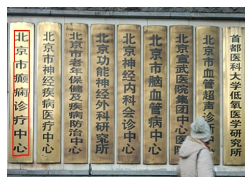 北京市癫痫诊疗中心
北京市神经疾病医疗中心
北京市老年保健及疾病防治中心
北京功能神经外科研究所
北京神经内科会诊中心
北京市脑血管病中心
北京宣武医院集团中心医院
北京市血管超声诊断中心
首都医科大学低氧医学研究所